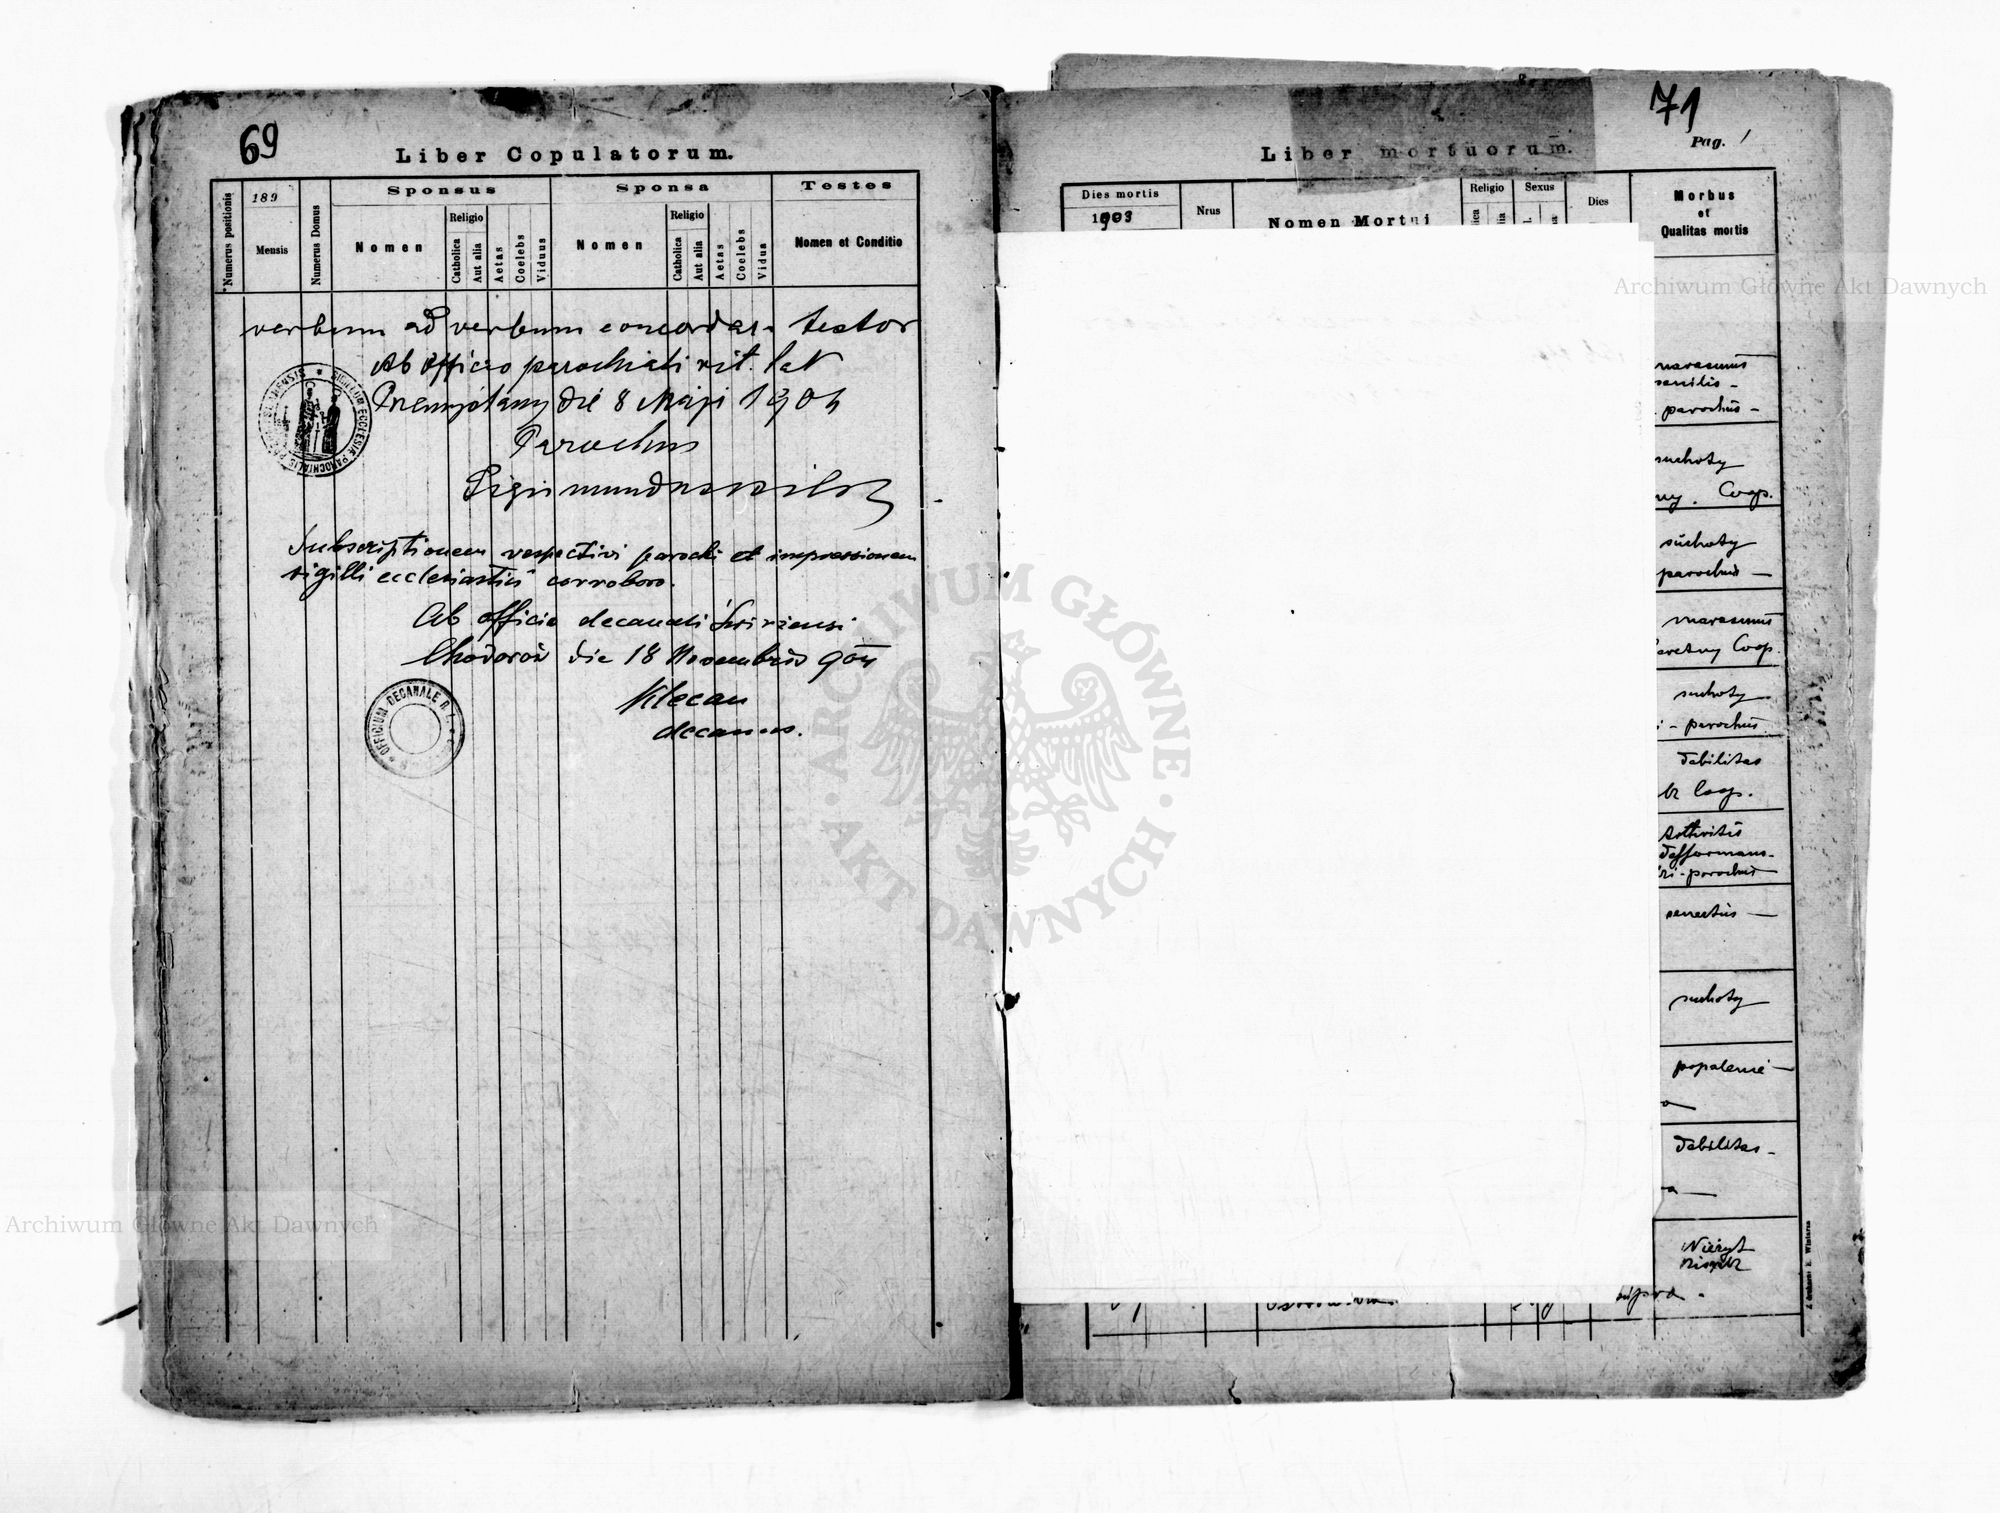 69
Liber Copulatorum.
Numerus positionis
189
Mensis
Numerus Domus
Sponsus
Nomen
Religio
Catholica
Aut alia
Aetas
Coelebs
Viduus
Sponsa
Nomen
Religio
Catholica
Aut alia
Aetas
Coelebs
Vidua
Testes
Nomen et Conditio
verbum ad verbum concordar. testor
Ab officio parochiali rit. lat
Przemyślany die 8 Maji 1904
Parochus
Sigismundus
Subscriptionem respectivi parochi et impressionem
sigilli ecclesiastici corroboro.
Ab officio decanali Świrzensi
Chodorów die 18 Novembris 904
Klecan
decanus.
SIGILLUM ECCLESIAE PAROCHIALIS
OFFICIUM DECANALE R. L.
71
Pag. 1
Liber mortuorum.
Dies mortis
1903
Nrus
Nomen Mortui
Religio
Sexus
Dies
Morbus
et
Qualitas mortis
marasmus
senilis -
parochus -
suchoty
Coop.
suchoty
parochus -
marasmus
Coop.
suchoty
- parochus
debilitas
Coop.
Arthritis
defformans -
- parochus
senectus -
suchoty
popalenie -
debilitas -
Nieżyt
kiszek
supra.
J. Aschauer E. Winiarza
Archiwum Główne Akt Dawnych
Archiwum Główne Akt Dawnych
ARCHIWUM GŁÓWNE · AKT DAWNYCH ·